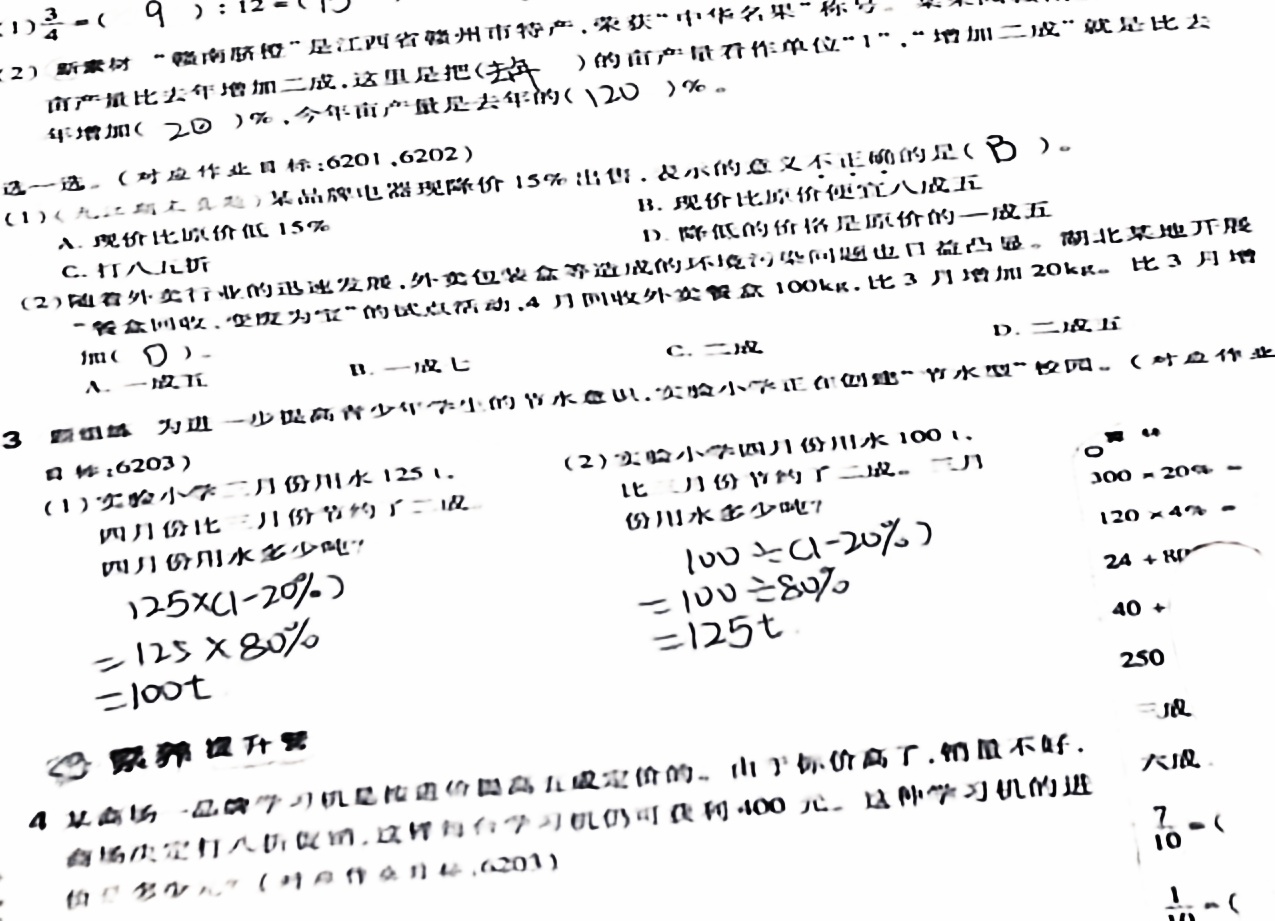 (1) 3/4 = ( 9 ) : 12 = ( 15
(2) 新素材 “赣南脐橙”是江西省赣州市特产,荣获“中华名果”称号。
亩产量比去年增加二成,这里是把(去年 )的亩产量看作单位“1”,“增加二成”就是比去
年增加( 20 )%,今年亩产量是去年的( 120 )%。
选一选。(对应作业目标:6201,6202)
(1)(九江期末真题)某品牌电器现降价 15% 出售,表示的意义不正确的是( B )。
A. 现价比原价低 15%
B. 现价比原价便宜八成五
C. 打八五折
D. 降低的价格是原价的一成五
(2)随着外卖行业的迅速发展,外卖包装盒等造成的环境污染问题也日益凸显。湖北某地开展
“餐盒回收,变废为宝”的试点活动,4 月回收外卖餐盒 100kg,比 3 月增加 20kg。比 3 月增
加( D )。
A. 一成五
B. 一成七
C. 二成
D. 二成五
3 题组练 为进一步提高青少年学生的节水意识,实验小学正在创建“节水型”校园。(对应作业
目标:6203)
(1)实验小学三月份用水 125 t,
四月份比三月份节约了二成。
四月份用水多少吨?
125×(1-20%)
=125×80%
=100t
(2)实验小学四月份用水 100 t,
比三月份节约了二成。三月
份用水多少吨?
100÷(1-20%)
=100÷80%
=125t
300 × 20% =
120 × 4% =
24 ÷ 80
40 ÷
250
三成
六成
7/10 = (
1/10 = (
素养提升营
4 某商场一品牌学习机是按进价提高五成定价的。由于标价高了,销量不好,
商场决定打八折促销,这样每台学习机仍可获利 400 元。这种学习机的进
价是多少元?(对应作业目标:6203)